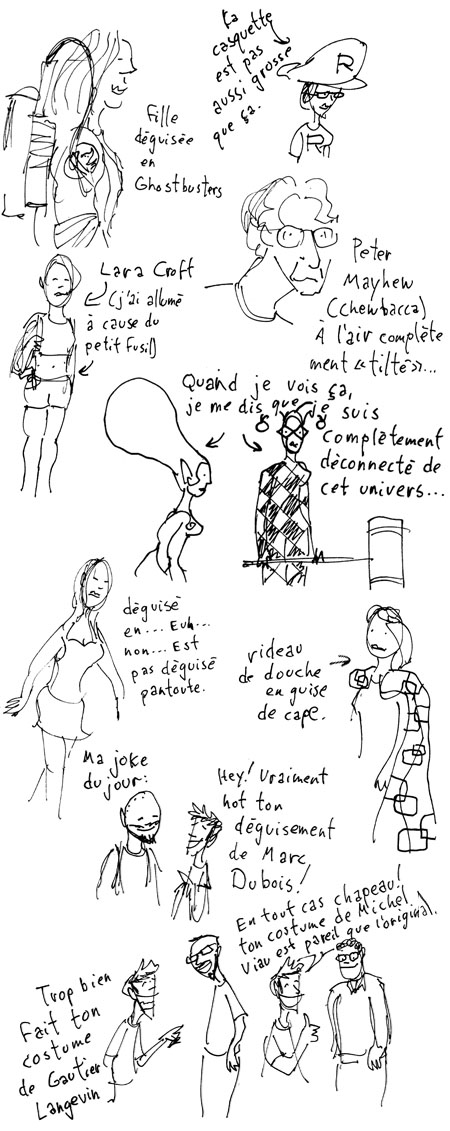 La
casquette
est pas
aussi grosse
que ça.
R
R
Fille
déguisée
en
Ghostbusters
Lara Croft
(j'ai allumé
à cause du
petit fusil)
Peter
Mayhew
(Chewbacca)
À l'air complète
ment «tilté»...
Quand je vois ça,
je me dis que je suis
complètement
déconnecté de
cet univers...
déguisé
en... Euh...
non... Est
pas déguisé
pantoute.
rideau
de douche
en guise
de cape.
Ma joke
du jour:
Hey! Vraiment
hot ton
déguisement
de Marc
Dubois!
En tout cas chapeau!
ton costume de Michel
Viau est pareil que l'original.
Trop bien
fait ton
costume
de Gautier
Langevin